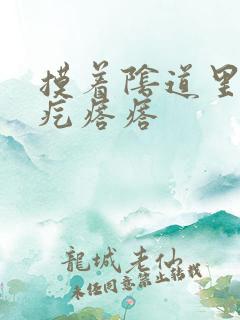 摸着陰道里
疙瘩瘩
龍城老仙
未经同意禁止转载